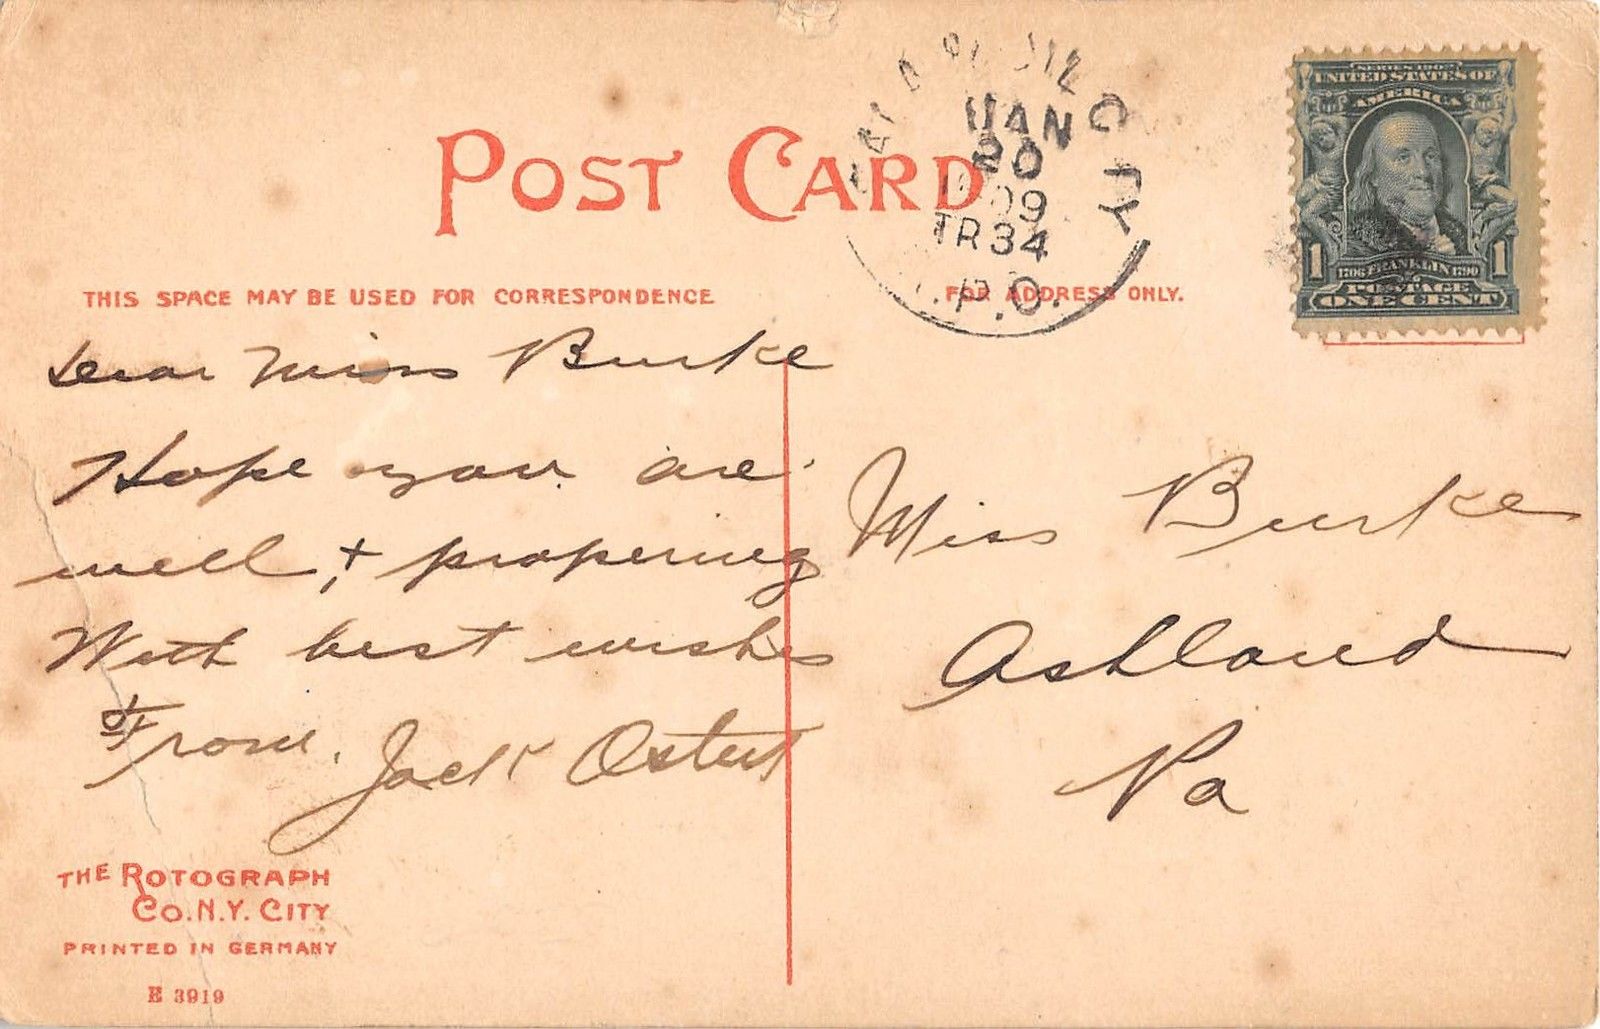 POST CARD
THIS SPACE MAY BE USED FOR CORRESPONDENCE
FOR ADDRESS ONLY.
JAN
20
09
TR 34
P.O.
CITY
SERIES 1902
UNITED STATES OF
AMERICA
1706 FRANKLIN 1790
1 1
POSTAGE
ONE CENT
Dear Miss Burke
Hope you are
well, + propering
With best wishes
From. Jack
Miss Burke
Ashland
Pa
THE ROTOGRAPH
CO. N.Y. CITY
PRINTED IN GERMANY
E 3919